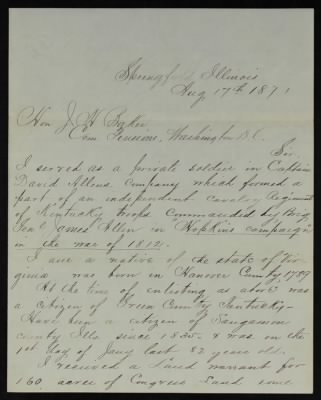 Springfield, Illinois
Aug 17th 1871
Hon J H Baker
Com Pensions, Washington D.C.
Sir.
I served as a private soldier in Captain
David Allens Company which formed a
part of an independent cavalry Regiment
of Kentucky troops commanded by Brig
Genl James Allen in Hopkins campaign
in the war of 1812.
I am a native of the state of Vir
ginia was born in Hanover County 1789
At the time of enlisting as above was
a citizen of Green County Kentucky.
Have been a citizen of Sangamon
county Ills since 1835 & was on the
1st day of Jany last 82 years old.
I received a land warrant for
160 acres of Congress Land some